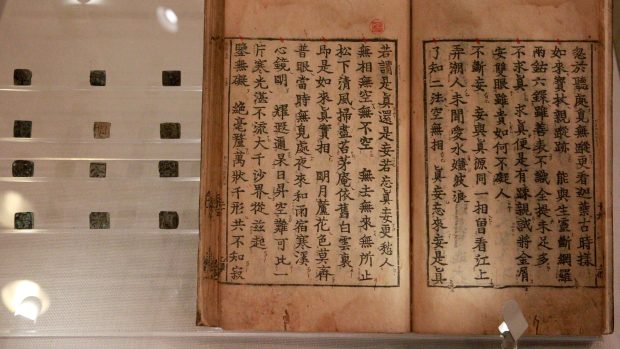 忽於聽處見無難更看迦葉古時樣
如來寶杖親蹤跡 能與生靈斷網羅
兩鈷六鐶雖善表不識全提未足多
不求眞 求眞便是有踈親試將金屑
安雙眼雖貴如何不礙人
不斷妄 妄與眞源同一相曾看江上
弄潮人未聞愛水嫌波浪
了知二法空無相 眞妄忘來妄是眞
若謂是眞還是妄若忘眞妄更愁人
無相無空無不空 無去無來無所止
松下清風掃盡苔茅庵依舊白雲裏
即是如來眞實相 明月蘆花色莫齊
普眼當時無覓處夜來和雨宿寒溪
心鏡明 耀遐邇杲日昇空難可比一
片寒光湛不流大千沙界從兹起
鑒無礙 絶毫釐萬狀千形共不知寂